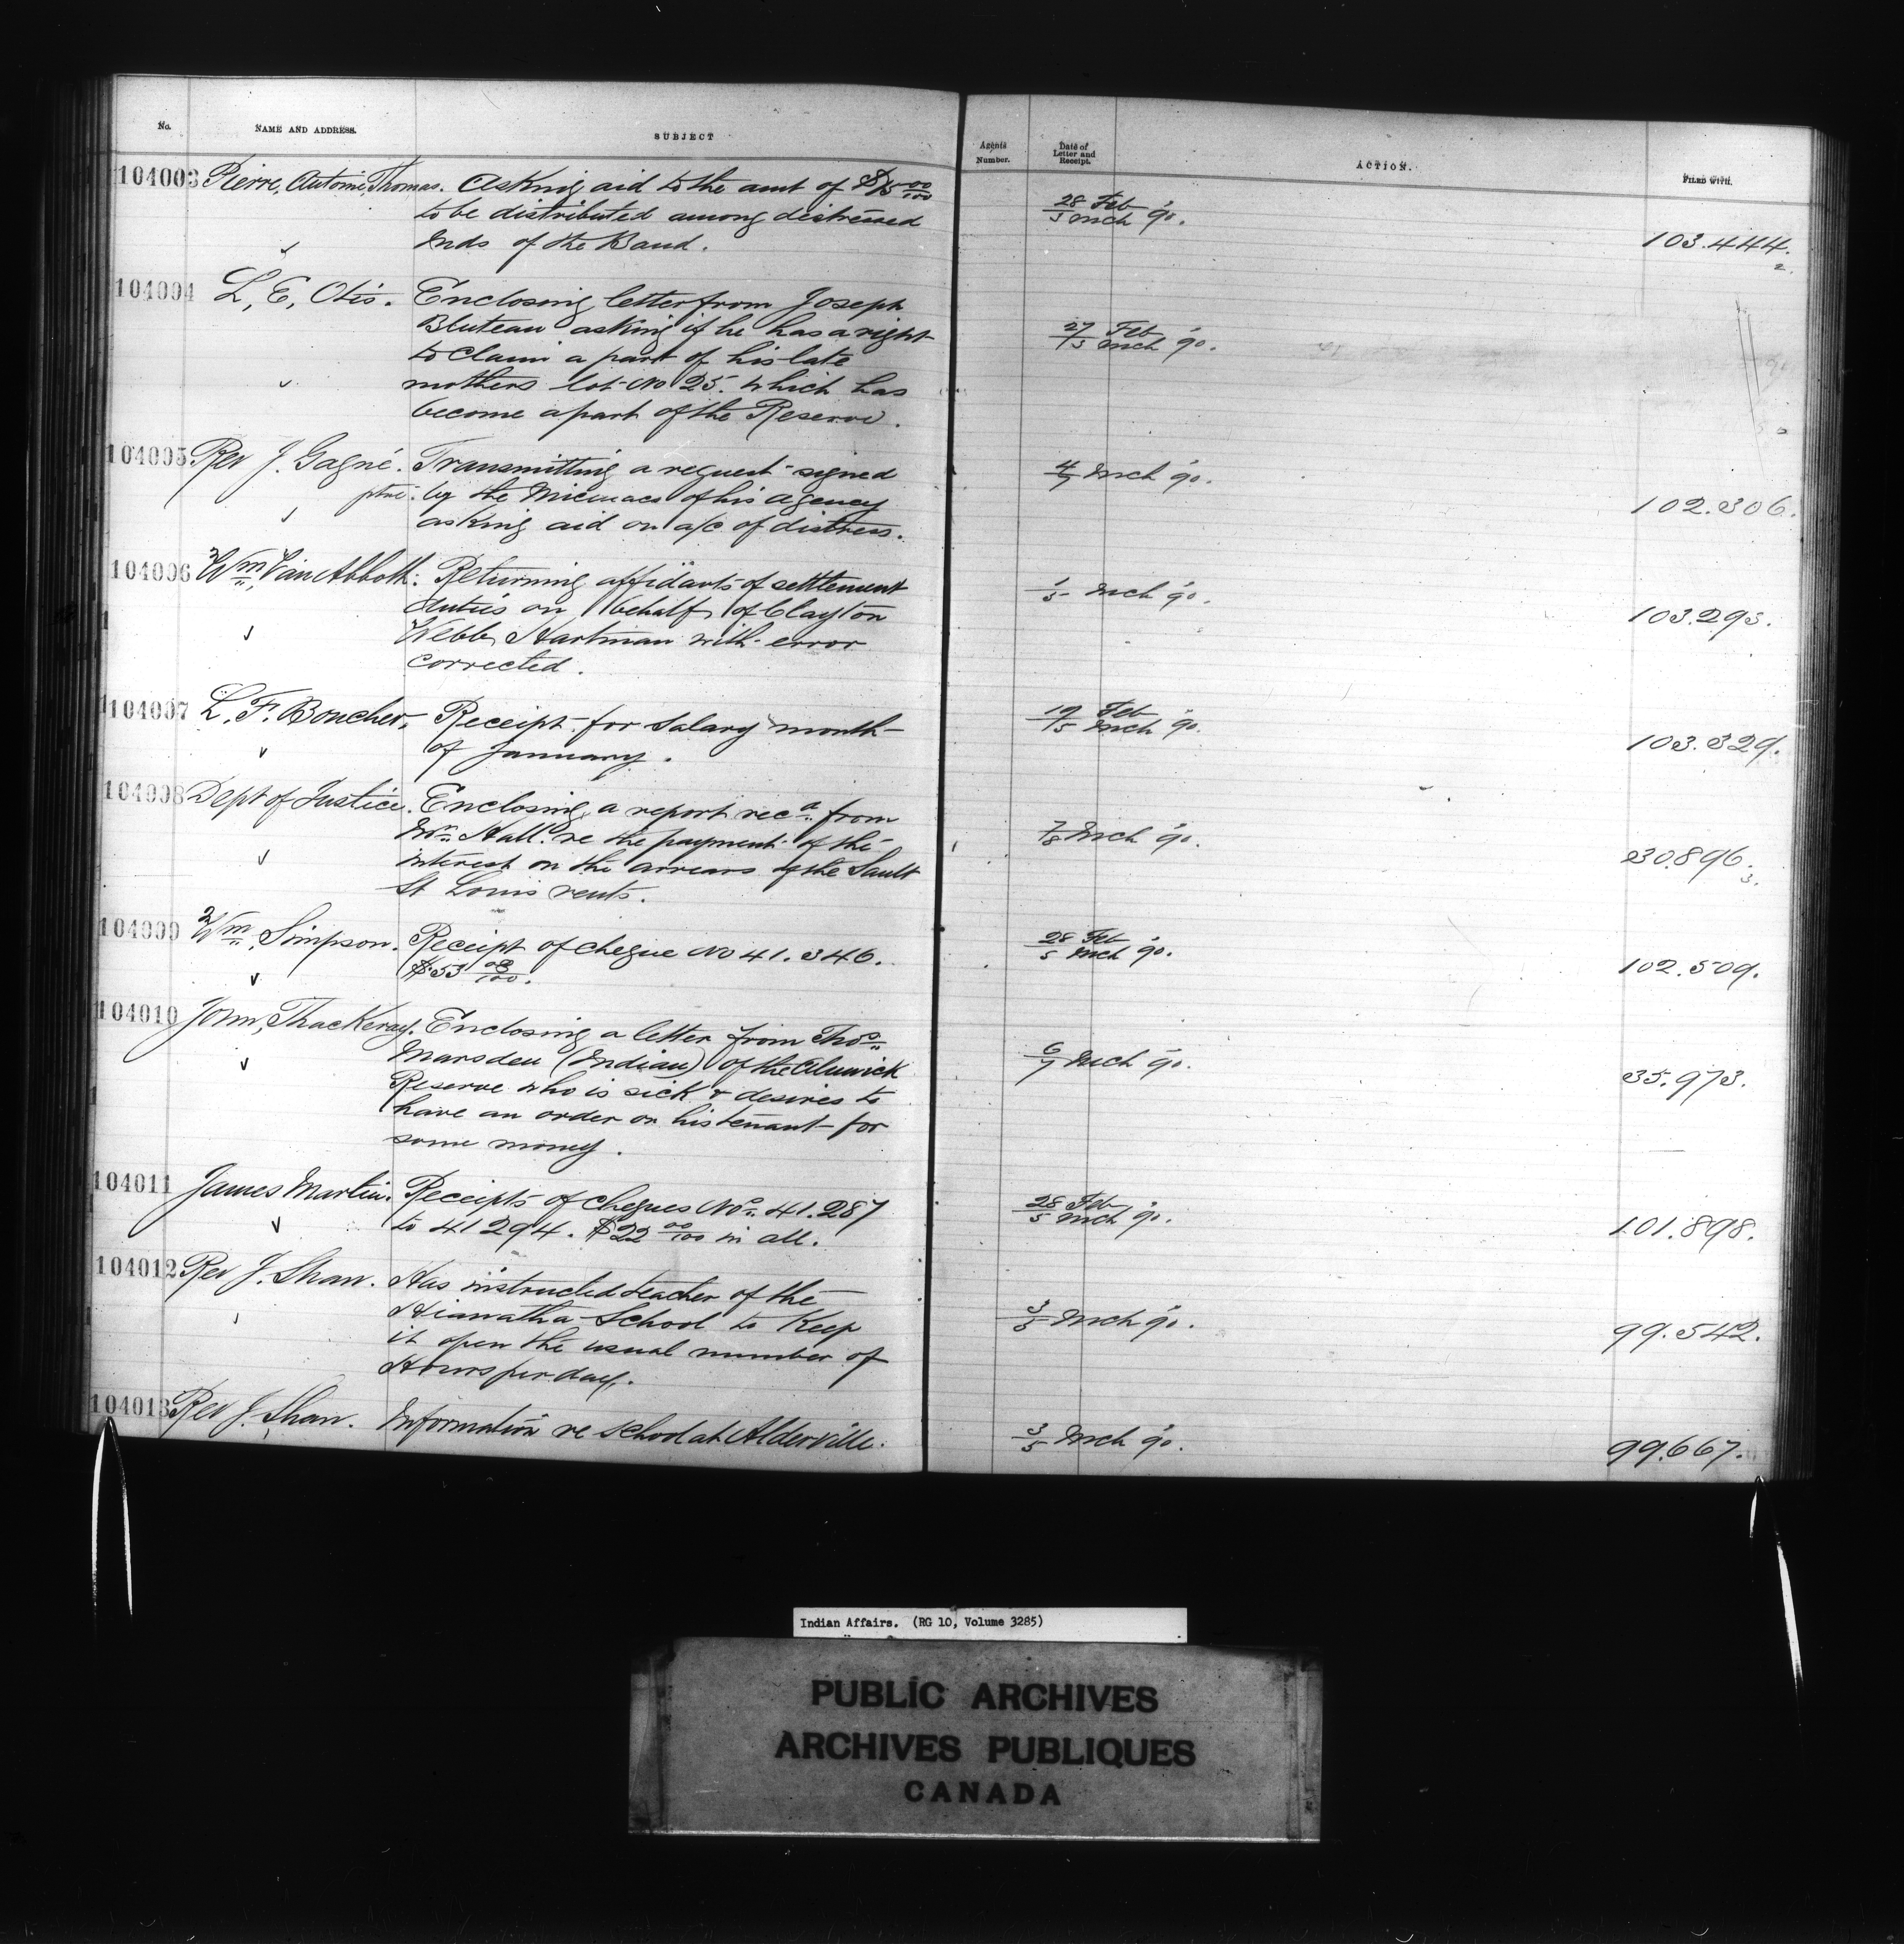 No.
NAME AND ADDRESS.
SUBJECT
Agents Number.
Date of Letter and Receipt.
ACTION.
FILED WITH.
104003 Pierre, Antoine, Thomas. Asking aid to the amt of $15 00/100
to be distributed among distressed
Inds of the Band.
28 Feb
5 Mch '90.
103.444.
2.
104004 L, E, Otis. Enclosing letter from Joseph
Bluteau asking if he has a right
to claim a part of his late
mothers lot No 25. which has
become a part of the Reserve.
27 Feb
5 Mch '90.
104005 Rev J. Gagné. Transmitting a request signed
ptre. by the Micmacs of his agency
asking aid on a/c of distress.
4/7 Mch '90.
102.306.
104006 Wm, Van Abbott. Returning affidavits of settlement
duties on behalf of Clayton
Webb Hartman with error
corrected.
1/5 Mch '90.
103.293.
104007 L. F. Boucher, Receipt for Salary month
of January.
19 Feb
5 Mch '90.
103.329.
104008 Dept of Justice. Enclosing a report recd from
Mr Hall re the payment of the
interest on the arrears of the Sault
St Louis rents.
7/8 Mch '90.
30.896.
3.
104009 Wm, Simpson. Receipt of cheque No 41.346.
$53 08/100.
28 Feb
5 Mch '90.
102.509.
104010 John, Thackeray. Enclosing a letter from Thos
Marsden (Indian) of the Alnwick
Reserve who is sick & desires to
have an order on his tenant for
some money.
6/7 Mch '90.
35.973.
104011 James Martin. Receipts of cheques Nos 41.287
to 41294. $22 00/100 in all.
28 Feb
5 Mch '90.
101.898.
104012 Rev J. Shaw. Has instructed teacher of the
Hiawatha School to Keep
it open the usual number of
Hours per day.
3/5 Mch '90.
99.542.
104013 Rev J. Shaw. Information re School at Alderville.
3/5 Mch '90.
99.667.
Indian Affairs. (RG 10, Volume 3285)
PUBLIC ARCHIVES
ARCHIVES PUBLIQUES
CANADA